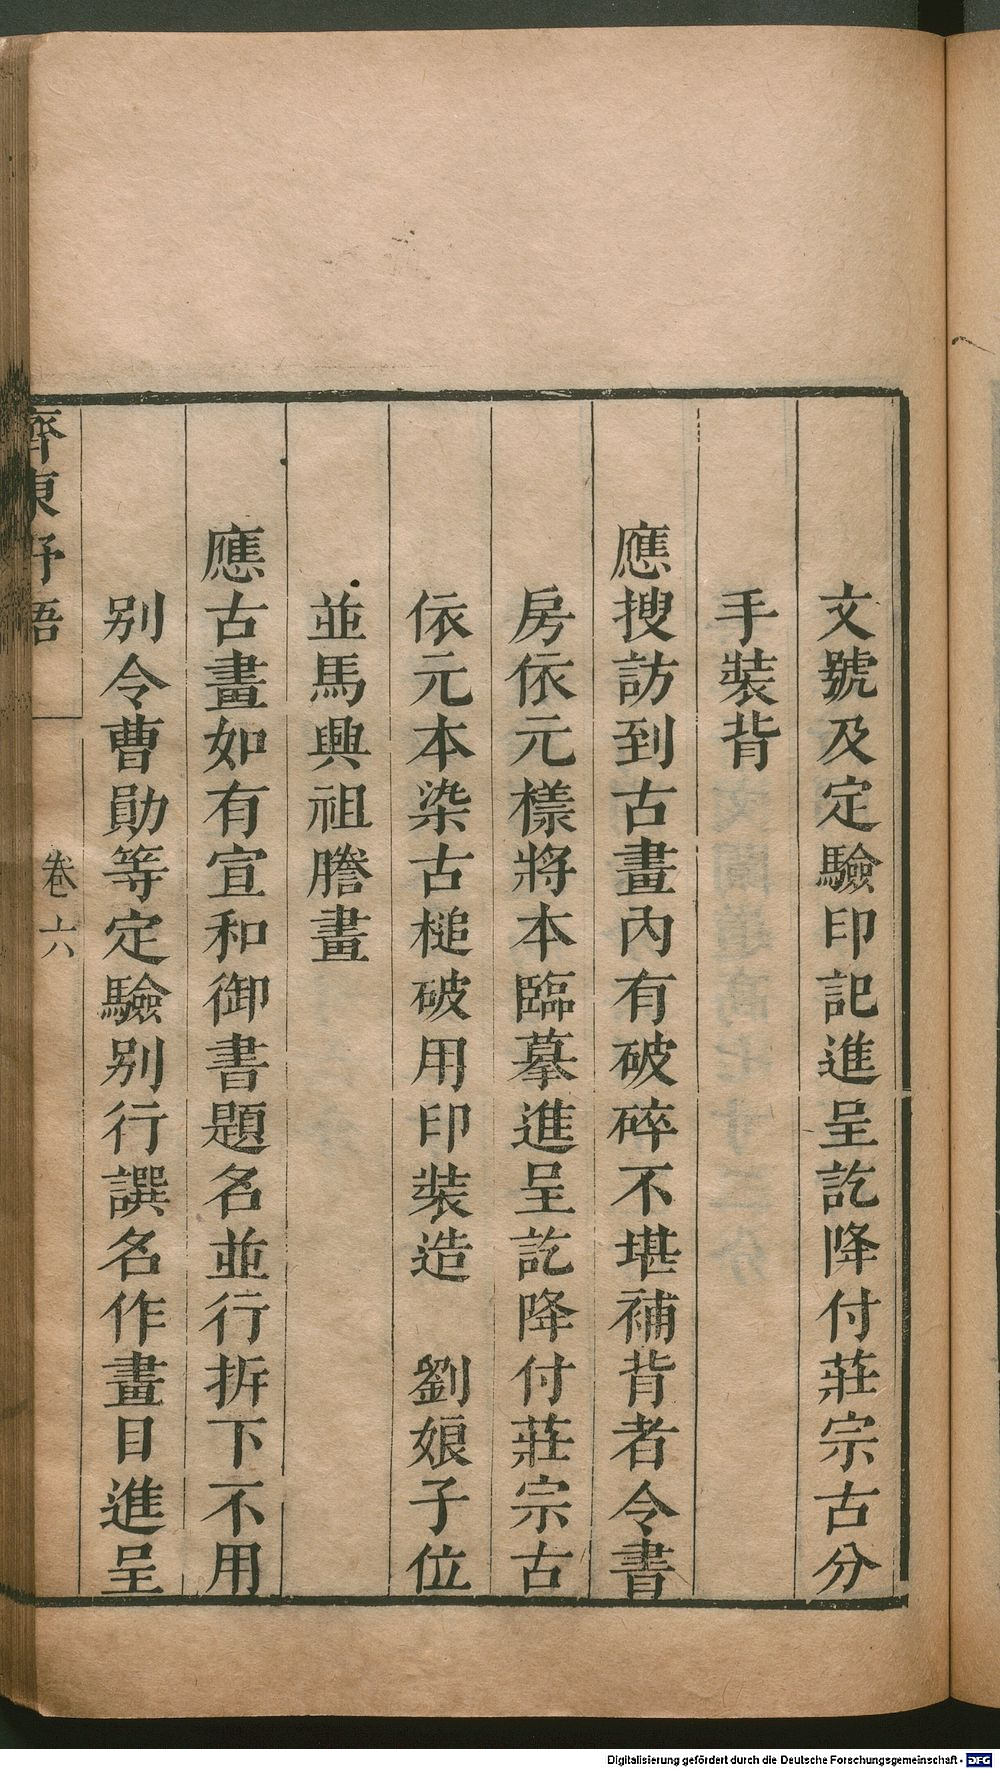 文號及定驗印記進呈訖降付莊宗古分
手裝背
應搜訪到古畫內有破碎不堪補背者令書
房依元樣將本臨摹進呈訖降付莊宗古
依元本染古槌破用印裝造　劉娘子位
並馬興祖謄畫
應古畫如有宣和御書題名並行拆下不用
别令曹勛等定驗别行譔名作畫目進呈
齊東野語
卷六
Digitalisierung gefördert durch die Deutsche Forschungsgemeinschaft - DFG